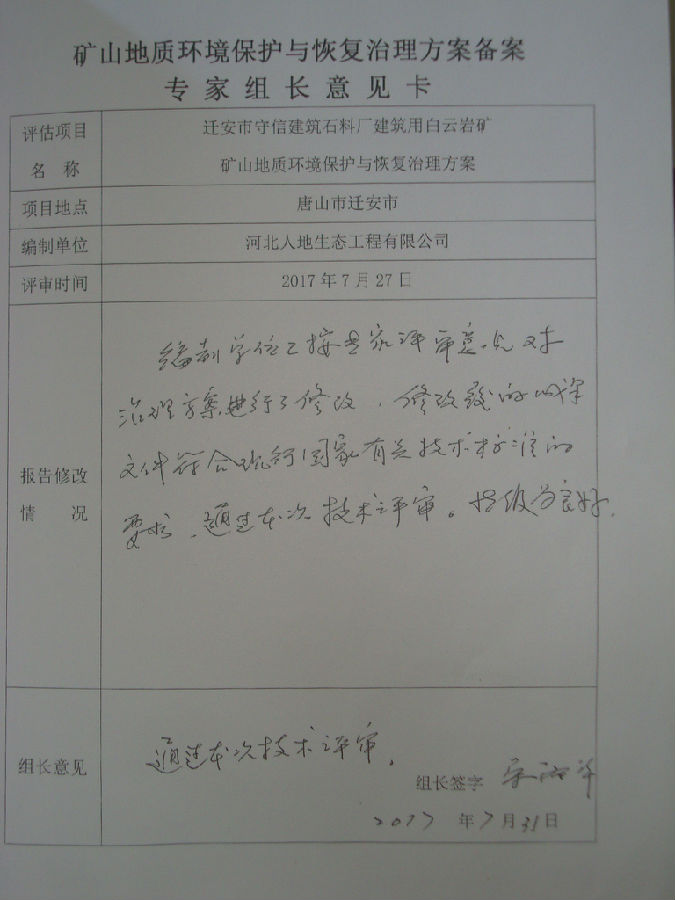 矿山地质环境保护与恢复治理方案备案
专家组长意见卡
评估项目
名 称
迁安市守信建筑石料厂建筑用白云岩矿
矿山地质环境保护与恢复治理方案
项目地点
唐山市迁安市
编制单位
河北人地生态工程有限公司
评审时间
2017年7月27日
报告修改
情 况
编制单位已按专家评审意见对
治理方案进行了修改，修改后的
文件符合现行国家有关技术标准的
要求，通过本次技术评审。等级为良好.
组长意见
通过本次技术评审。
组长签字
2017 年 7 月 31 日